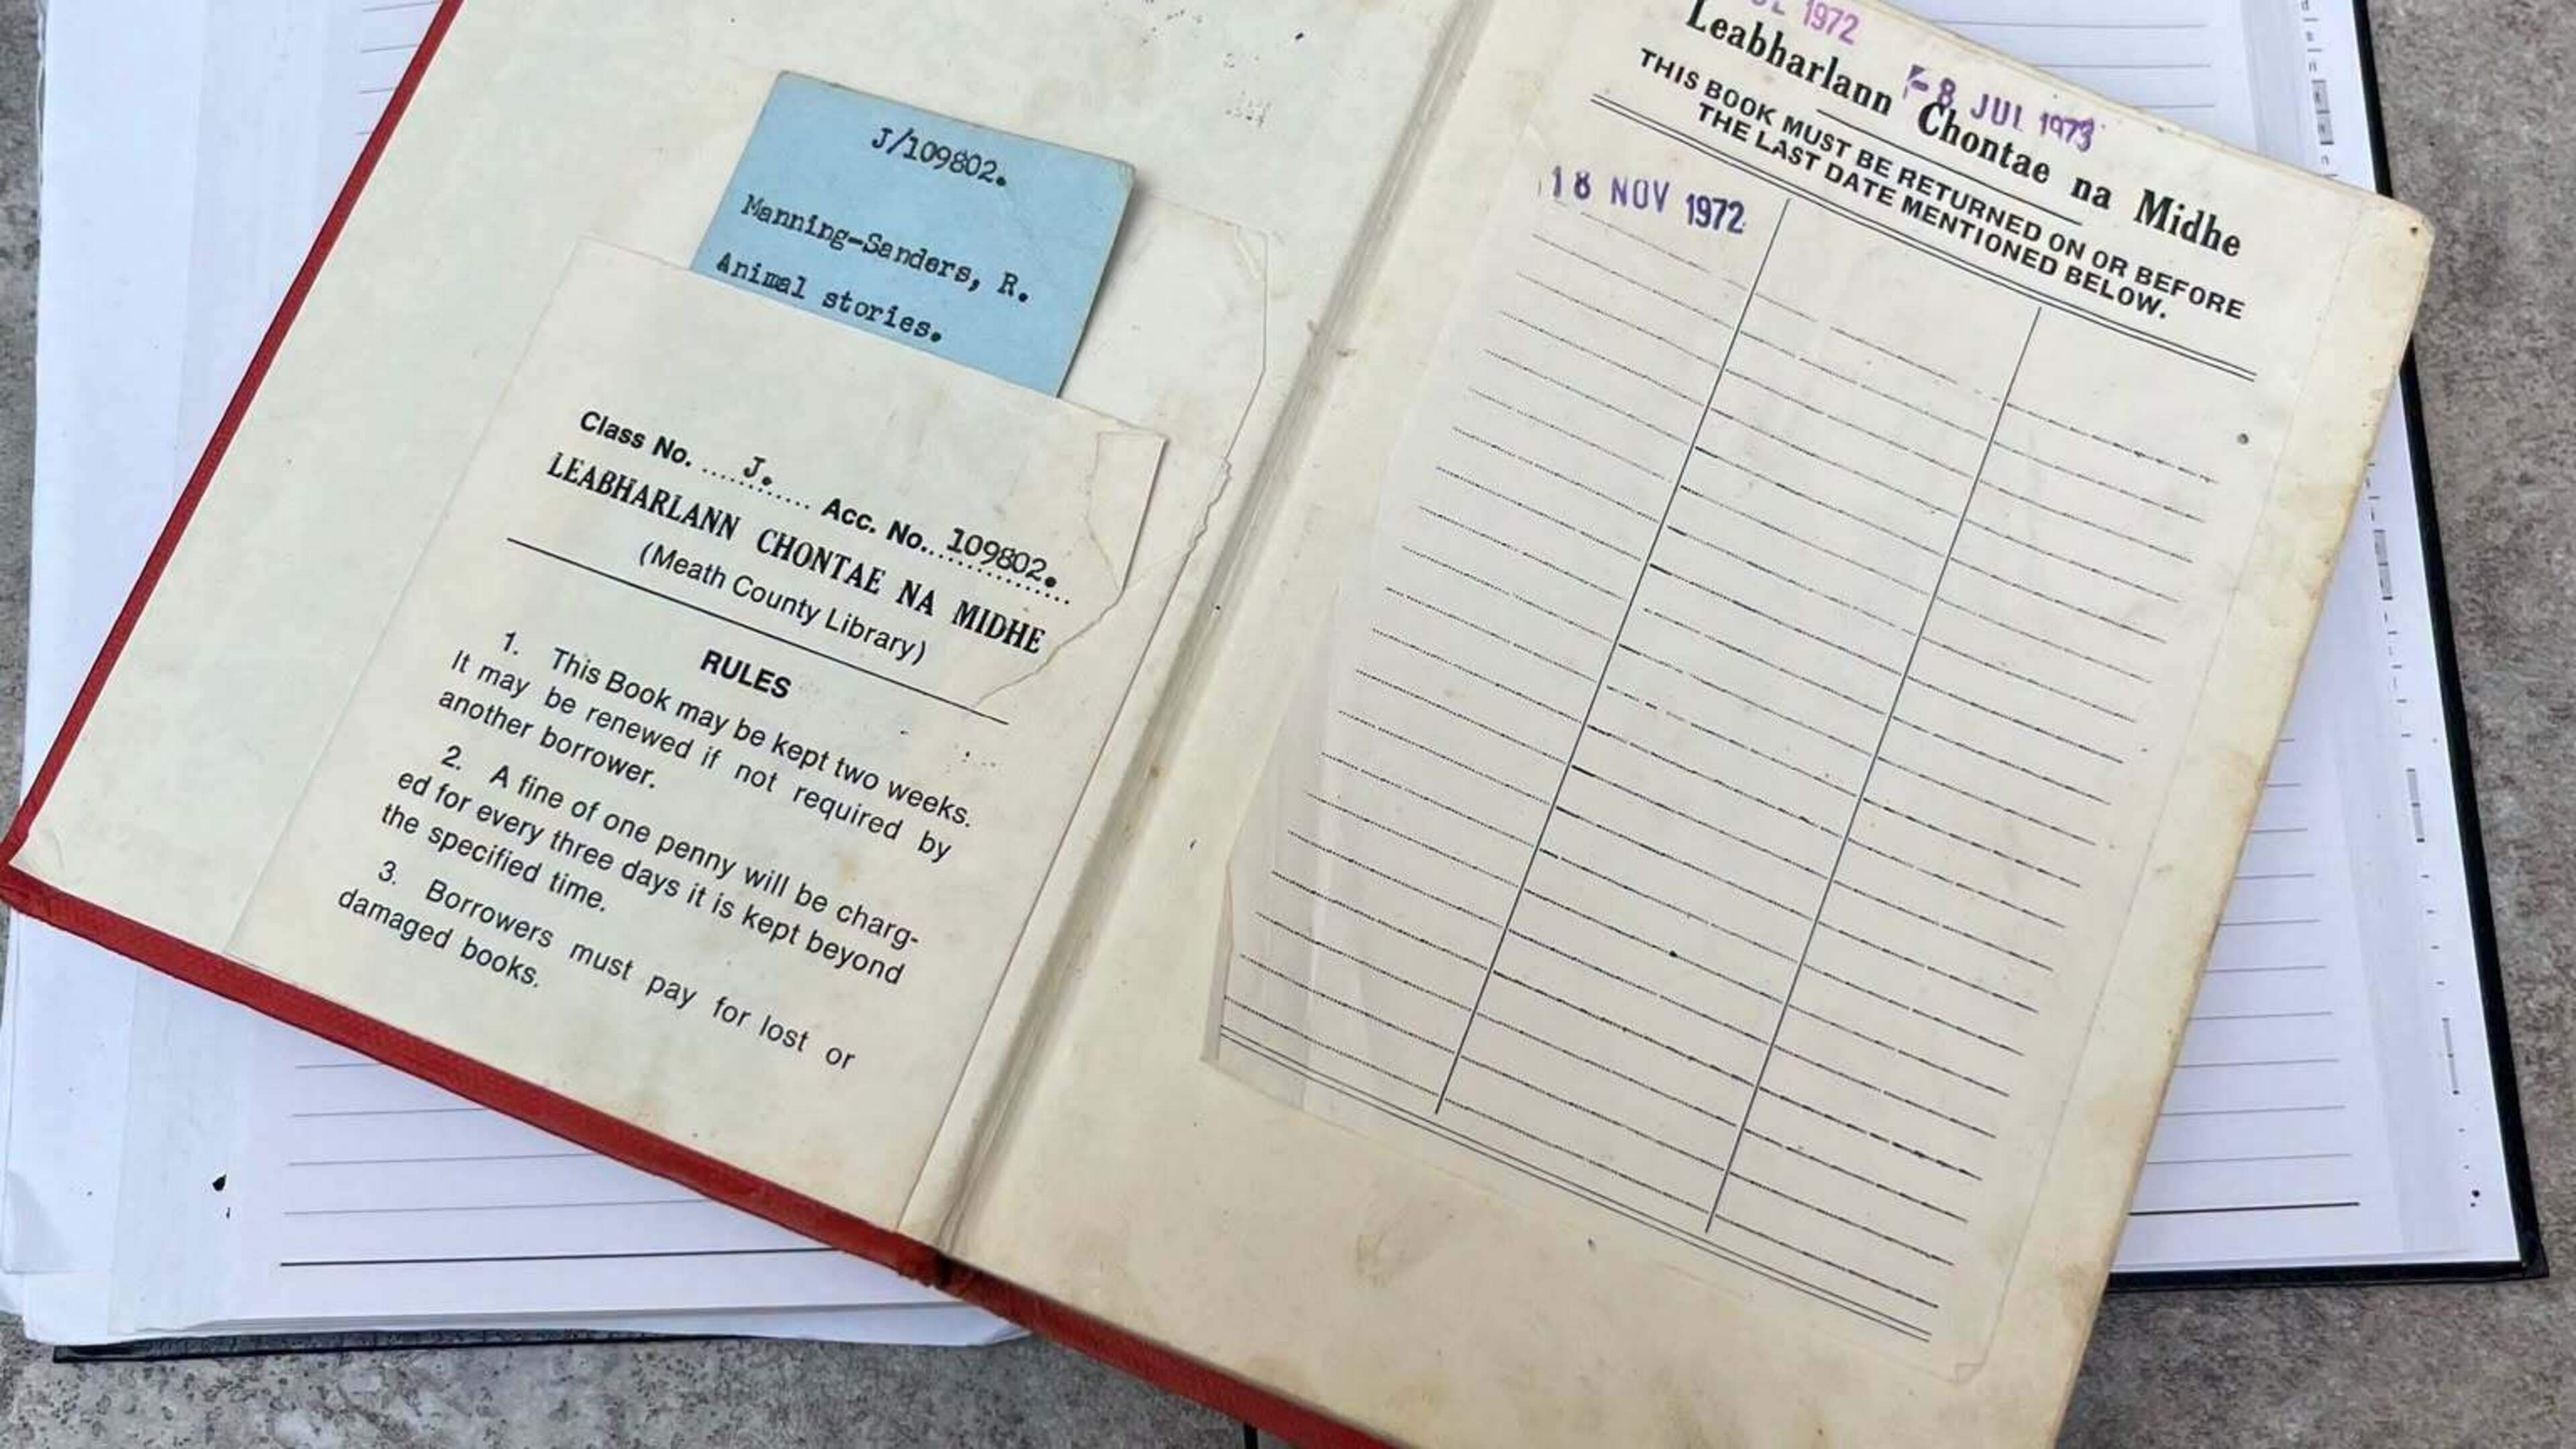 J/109802.
Manning-Sanders, R.
Animal stories.
Class No. .... J. .... Acc. No. .. 109802.
LEABHARLANN CHONTAE NA MIDHE
(Meath County Library)
RULES
1. This Book may be kept two weeks.
It may be renewed if not required by
another borrower.
2. A fine of one penny will be charg-
ed for every three days it is kept beyond
the specified time.
3. Borrowers must pay for lost or
damaged books.
1972
-8 JUL 1973
Leabharlann Chontae na Midhe
THIS BOOK MUST BE RETURNED ON OR BEFORE
THE LAST DATE MENTIONED BELOW.
18 NOV 1972